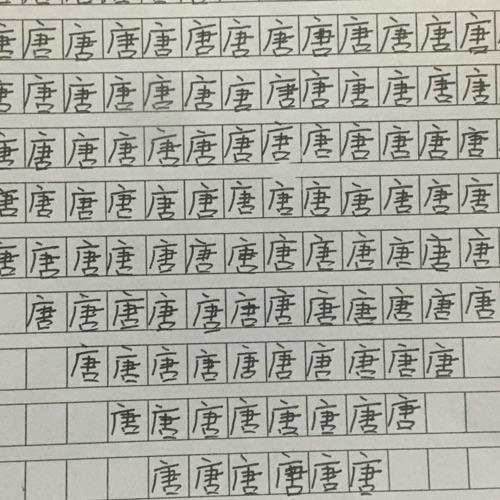 唐唐唐唐唐唐唐唐唐唐唐唐唐
唐唐唐唐唐唐唐唐唐唐唐唐唐
唐唐唐唐唐唐唐唐唐唐唐唐唐
唐唐唐唐唐唐唐唐唐唐唐唐唐
唐唐唐唐唐唐唐唐唐唐唐唐唐
唐唐唐唐唐唐唐唐唐唐唐唐
唐唐唐唐唐唐唐唐唐唐
唐唐唐唐唐唐唐唐
唐唐唐唐唐唐